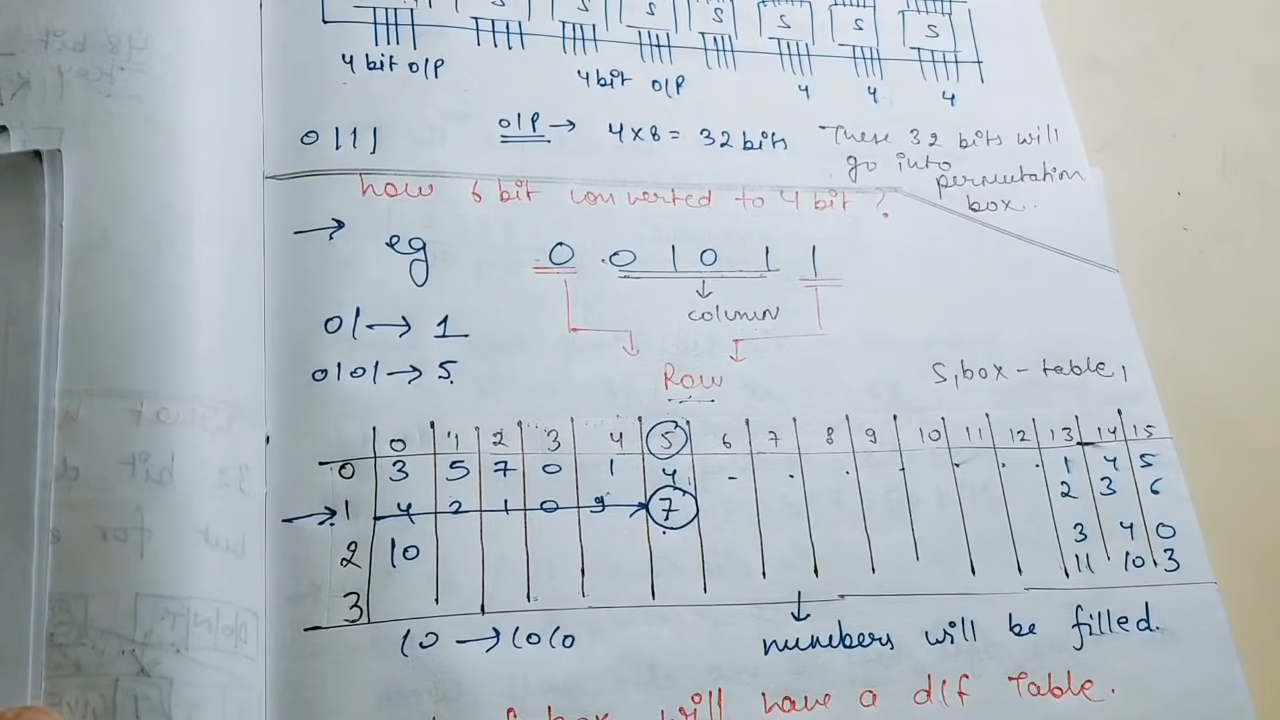 S S S S S S S
4 bit O/P 4 bit O/P 4 4 4
0111 O/P → 4x8 = 32 bits These 32 bits will
go into
permutation
box.
how 6 bit converted to 4 bit ?
→ eg 0 0 1 0 1 1
column
01 → 1
0101 → 5
Row
S,box - table,
0 1 2 3 4 5 6 7 8 9 10 11 12 13 14 15
0 3 5 7 0 1 4 - . . . . . . 1 4 5
→ 1 4 2 1 0 9 7 2 3 6
2 10 3 4 0
11 10 3
3
10 → 1010 numbers will be filled.
box will have a d/f Table.